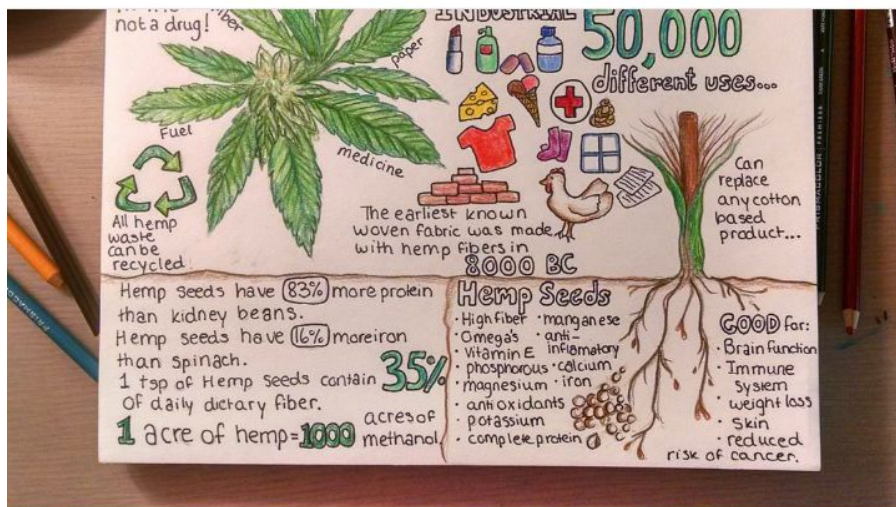 not a drug!
fiber
paper
Fuel
medicine
INDUSTRIAL
50,000
different uses...
All hemp
waste
can be
recycled!
The earliest known
woven fabric was made
with hemp fibers in
8000 BC
Can
replace
any cotton
based
product...
Hemp seeds have 83% more protein
than kidney beans.
Hemp seeds have 16% more iron
than spinach.
1 tsp of Hemp seeds contain 35%
of daily dietary fiber.
1 acre of hemp = 1000 acres of
methanol
Hemp Seeds
· High fiber
· Omega's
· Vitamin E
phosphorous
· magnesium
· antioxidants
· potassium
· complete protein
· manganese
· anti-
inflamatory
· calcium
· iron
GOOD for:
· Brain function
· Immune
System
· weight loss
· Skin
· reduced
risk of cancer.
PRISMACOLOR PREMIER